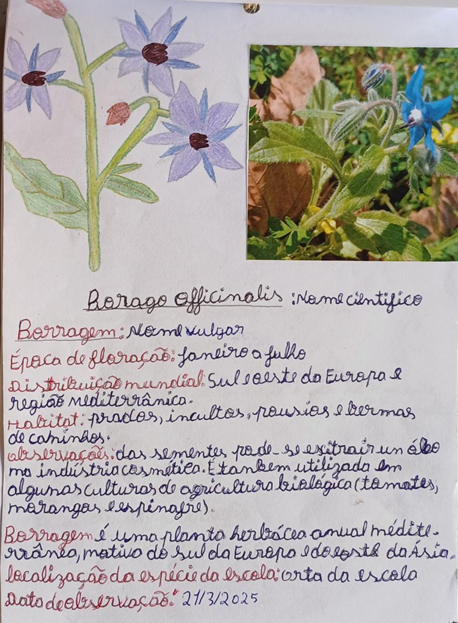 Borago officinalis : Nome cientifico
Borragem: Nome vulgar
Época de floração: Janeiro a julho
Distribuição mundial: Sul e oeste da Europa e
região mediterrânica.
Habitat: prados, incultos, pousios e bermas
de caminhos.
Observações: das sementes pode-se extrair un óleo
na indústria cosmética. E tanbem utilizada em
algunas culturas de agricultura biológica (tomates,
morangos e espinafre).
Borragem é uma planta herbácea anual médite-
rrânea, nativa do sul da Europa e do oeste da Ásia.
localização da espécie da escola: orta da escola
Data de observação:" 21/3/2025